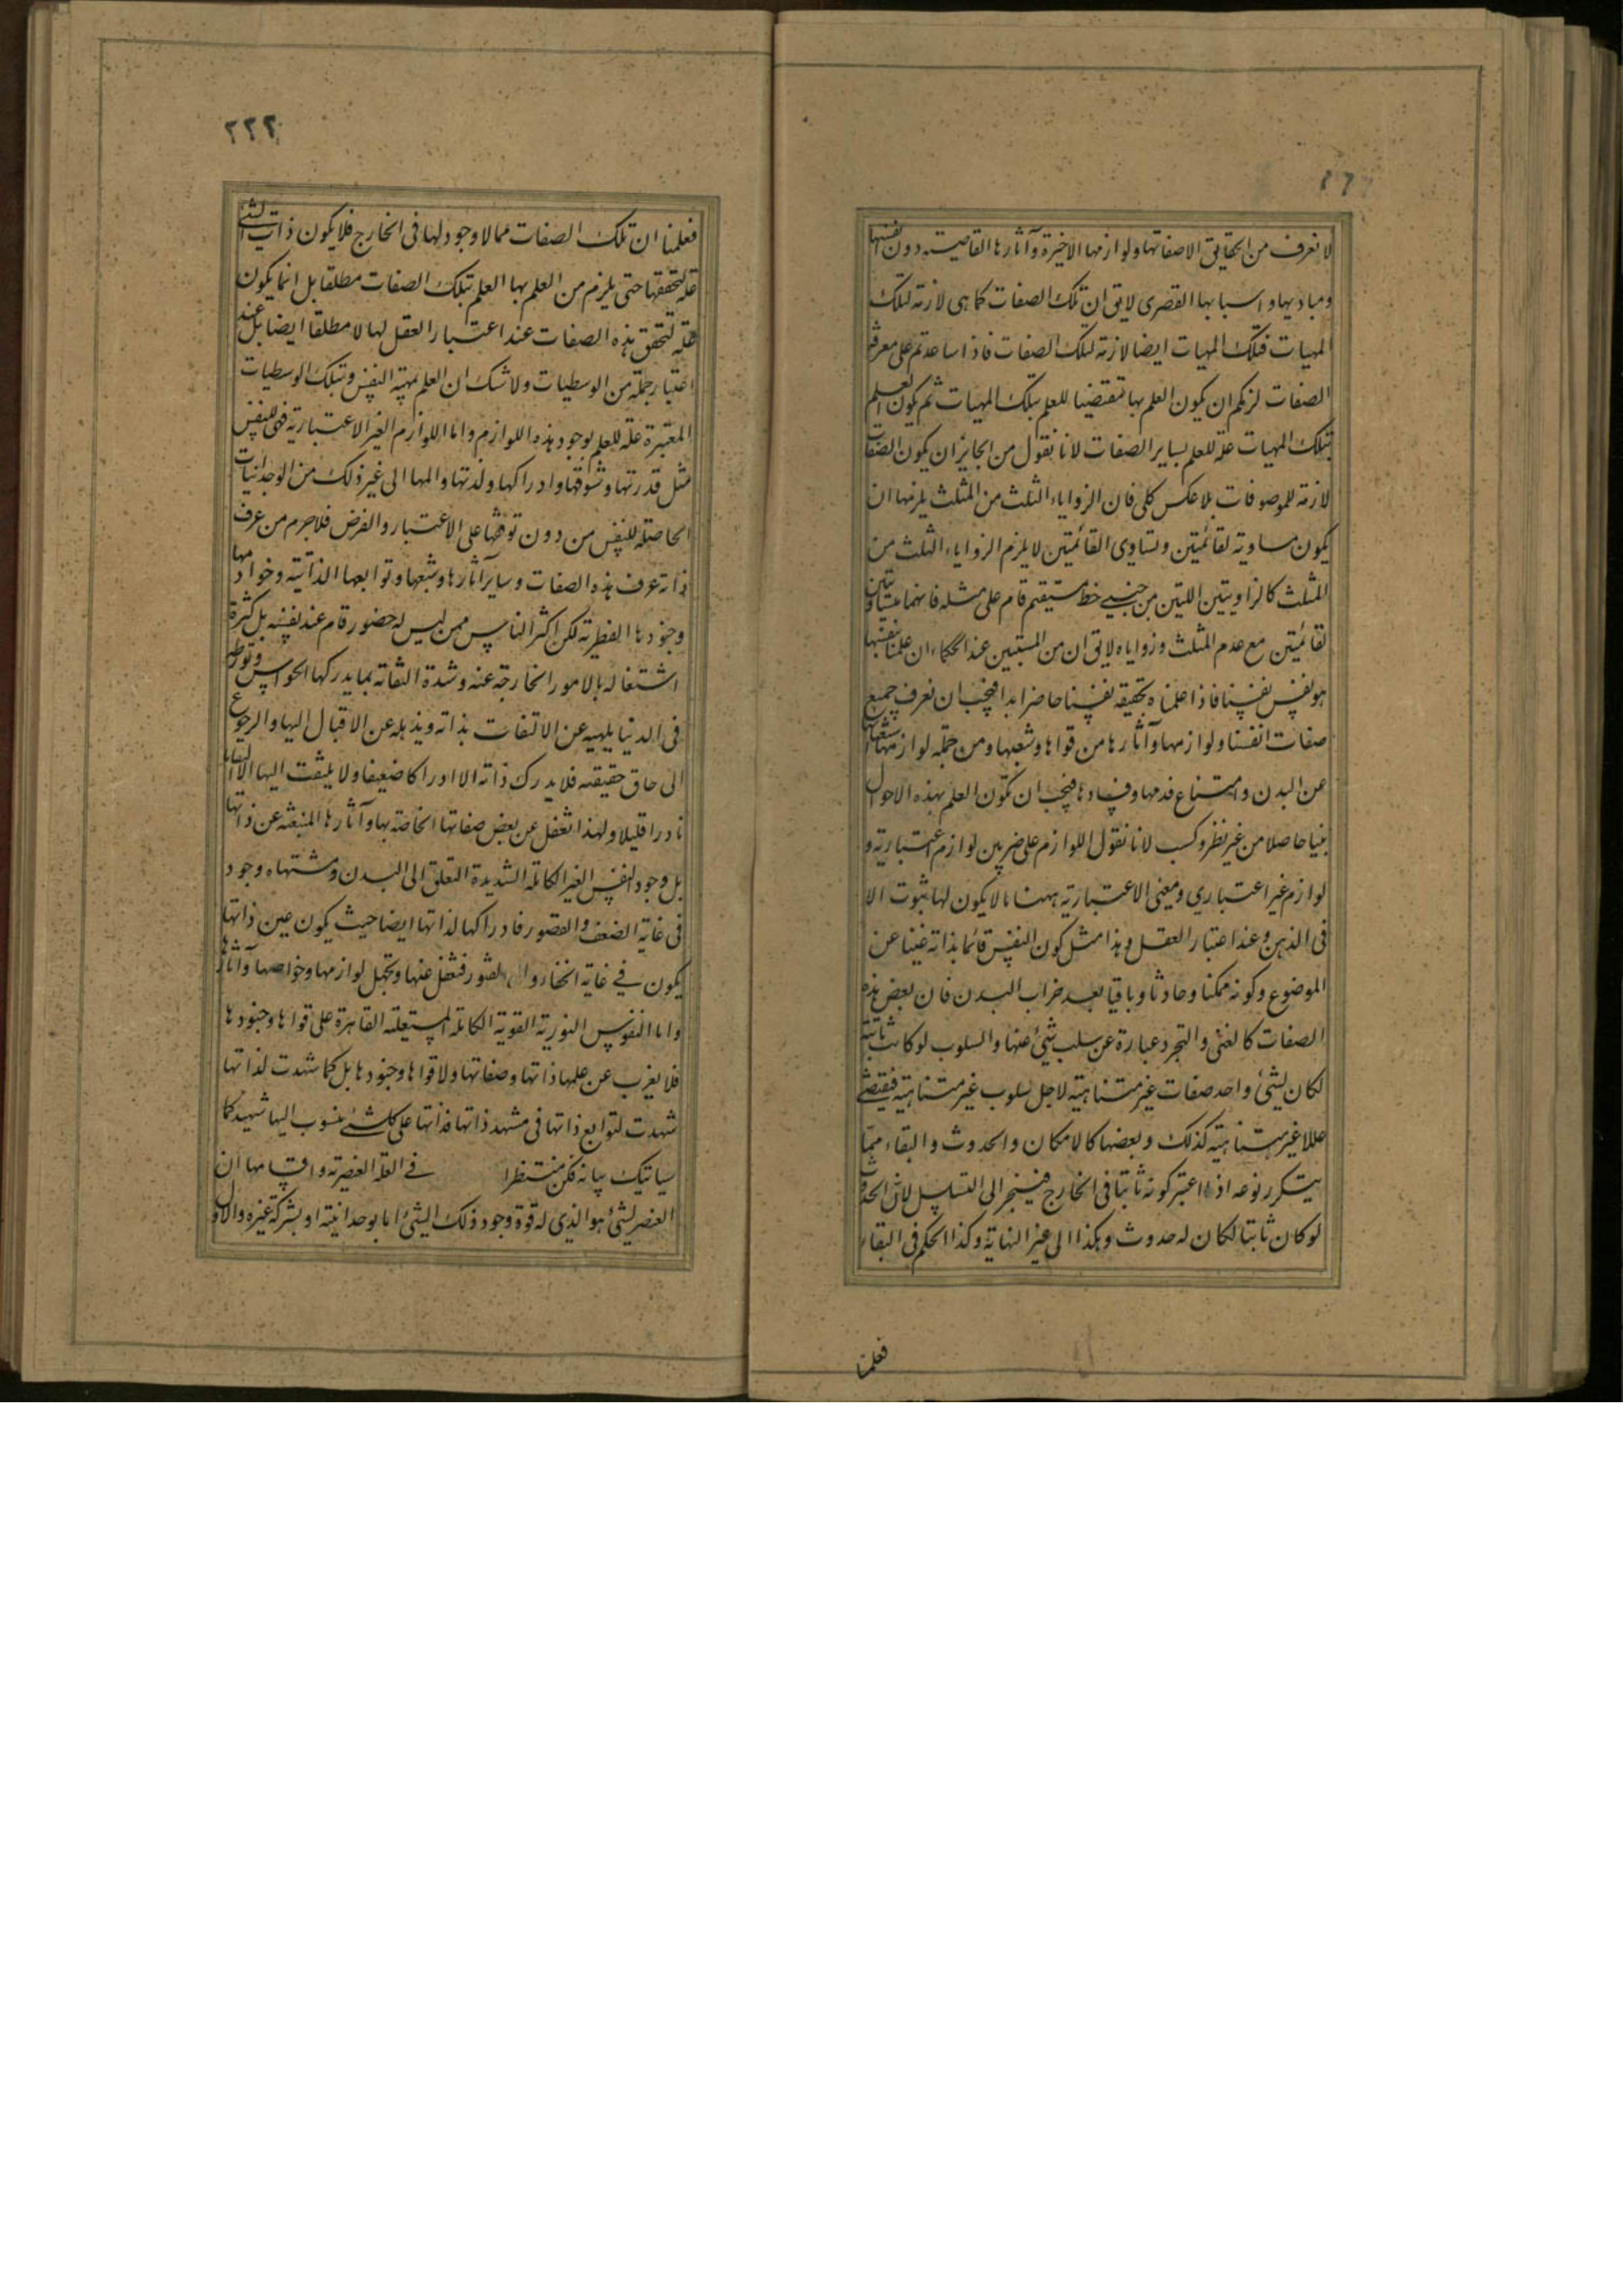 لا نعرف من الحقايق الا صفاتها ولوازمها الاخيرة وآثارها القاصية دون انفسها
ومباديها واسبابها القصرى لا يق ان تلك الصفات كما هى لازمة لتلك
المهيات فتلك المهيات ايضا لازمة لتلك الصفات فاذا ساعدتم على معرفة
الصفات لزمكم ان يكون العلم بها مقتضيا للعلم بتلك المهيات ثم يكون العلم
بتلك المهيات علة للعلم بساير الصفات لانا نقول من الجائز ان يكون الصفات
لازمة للموصوفات بلا عكس كلى فان الزواياء الثلث من المثلث يلزمها ان
يكون مساوية لقائمتين وتساوى القائمتين لا يلزم الزواياء الثلث من
المثلث كالزاويتين اللتين من جنبى خط مستقيم قام على مثله فانهما متساويتين
لقائمتين مع عدم المثلث وزواياه لا يق ان من المستبين عند الحكماء ان علمنا بنفسنا
هو نفس نفسنا فاذا علمنا بحقيقة نفسنا حاضر ابدا فيجب ان نعرف جميع
صفات انفسنا ولوازمها وآثارها من قواها وشعبها ومن جملة لوازمها استغنائها
عن البدن وامتناع قدمها وفسادها فيجب ان تكون العلم بهذه الاحوال
بينا حاصلا من غير نظر وكسب لانا نقول اللوازم على ضربين لوازم اعتبارية و
لوازم غير اعتبارى ومعنى الاعتبارية ههنا ما لا يكون لها ثبوت الا
فى الذهن وعند اعتبار العقل وهذا مثل كون النفس قائما بذاته غنيا عن
الموضوع وكونه ممكنا وحادثا وباقيا بعد خراب البدن فان بعض هذه
الصفات كالغنى والتجرد عبارة عن سلب شئ عنها والسلوب لو كانت ثابتة
لكان لشئ واحد صفات غير متناهية لاجل سلوب غير متناهية فيقتضى
عللا غير متناهية كذلك وبعضها كالامكان والحدوث والبقاء مما
يتكرر نوعه اذا اعتبر كونه ثابتا فى الخارج فينجر الى التسلسل لان الحدوث
لو كان ثابتا لكان له حدوث وهكذا الى غير النهاية وكذا الحكم فى البقاء
فعلمنا
٢٢٢
فعلمنا ان تلك الصفات مما لا وجود لها فى الخارج فلا يكون ذات الشئ
علة لتحققها حتى يلزم من العلم بها العلم بتلك الصفات مطلقا بل انما يكون
علة لتحقق هذه الصفات عند اعتبار العقل لها لا مطلقا ايضا بل عند
اعتبار جملة من الوسطيات ولا شك ان العلم بمهية النفس وبتلك الوسطيات
المعتبرة علة للعلم بوجود هذه اللوازم واما اللوازم الغير الاعتبارية فهى للنفس
مثل قدرتها وشوقها وادراكها ولذتها والمها الى غير ذلك من الوجدانيات
الحاصلة للنفس من دون توقفها على الاعتبار والفرض فلا جرم من عرف
ذاته عرف هذه الصفات وساير آثارها وشعبها وتوابعها الذاتية وخوادمها
وجنودها الفطرية لكن اكثر الناس ممن ليس له حضور قام عند نفسه بل كثرة
اشتغاله بالامور الخارجة عنه وشدة التفاته بما يدركها الحواس وتورطه
فى الدنيا يلهيه عن الالتفات بذاته ويذهله عن الاقبال اليها والرجوع
الى حاق حقيقته فلا يدرك ذاته الا ادراكا ضعيفا ولا يلتفت اليها الا التفاتا
نادرا قليلا ولهذا تغفل عن بعض صفاتها الخاصة بها وآثارها المنبعثة عن ذاتها
بل وجود النفس الغير الكاملة الشديدة التعلق الى البدن ومشتهاه وجود
فى غاية الضعف والقصور فادراكها لذاتها ايضا حيث يكون عين ذاتها
يكون فى غاية الخفاء والقصور فتغفل عنها وتجهل لوازمها وخواصها وآثارها
واما النفوس النورية القوية الكاملة المستعلية القاهرة على قواها وجنودها
فلا يعزب عن علمها ذاتها وصفاتها ولا قواها وجنودها بل كما شهدت لذاتها
شهدت لتوابع ذاتها فى مشهد ذاتها فذاتها على كل شئ منسوب اليها شهيد كما
سياتيك بيانه فكن منتظرا فى العلة العنصرية واقسامها ان
العنصر لشئ هو الذى له قوة وجود ذلك الشئ اما بوحدانيته او بشركة غيره والاول